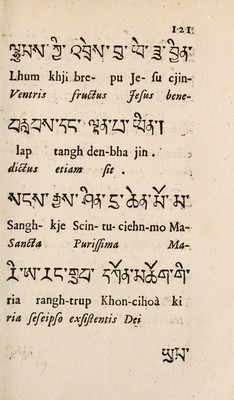 121
ལྷུམས་ཀྱི་འབྲེས་བུ་ཡེ་ཟུ་བྱིན་
Lhum khji bre- pu Je- su cjin-
Ventris fructus Jesus bene-
བརླབས་དང་ ལྡན་པ་ཡིན།
lap tangh den-bha jin .
dictus etiam sit .
སངས་རྒྱས་ཤིན་ཏུ་ཆེན་མོ་མ་
Sangh- kje Scin- tu- ciehn-mo Ma-
Sancta Purissima Ma-
རི་ཨ་རང་གྲུབ་དཀོན་མཆོག་གི་
ria rangh-trup Khon-cihoà ki
ria seseipso exsistentis Dei
ཡུམ་